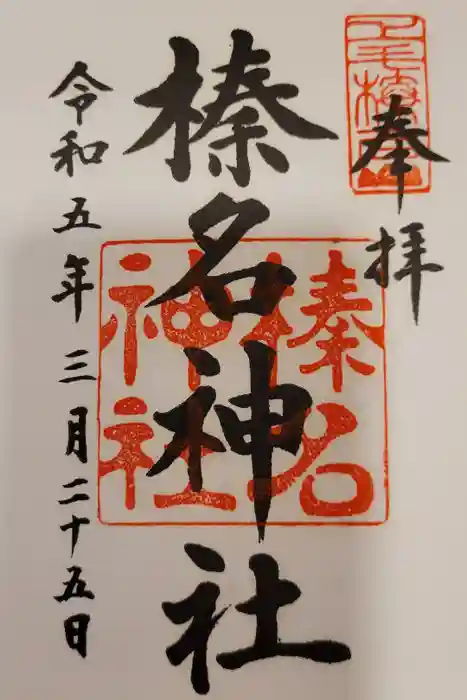 奉拝
上毛榛名
榛名神社
榛名
神社
令和五年三月二十五日